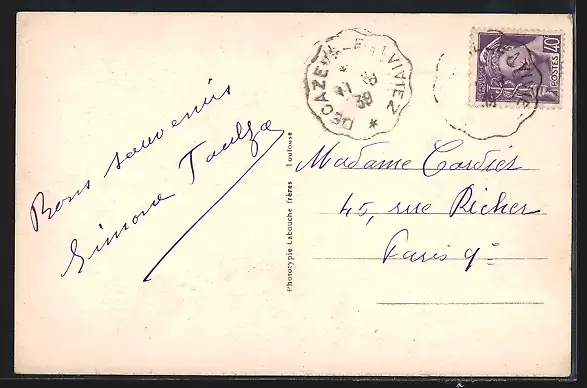 Bons souvenirs
Simone Toulza
Phototypie Labouche frères Toulouse
DECAZEVILLE - VIVIEZ
38
40c
POSTES
Madame Cordier
45, rue Richer
Paris 9e